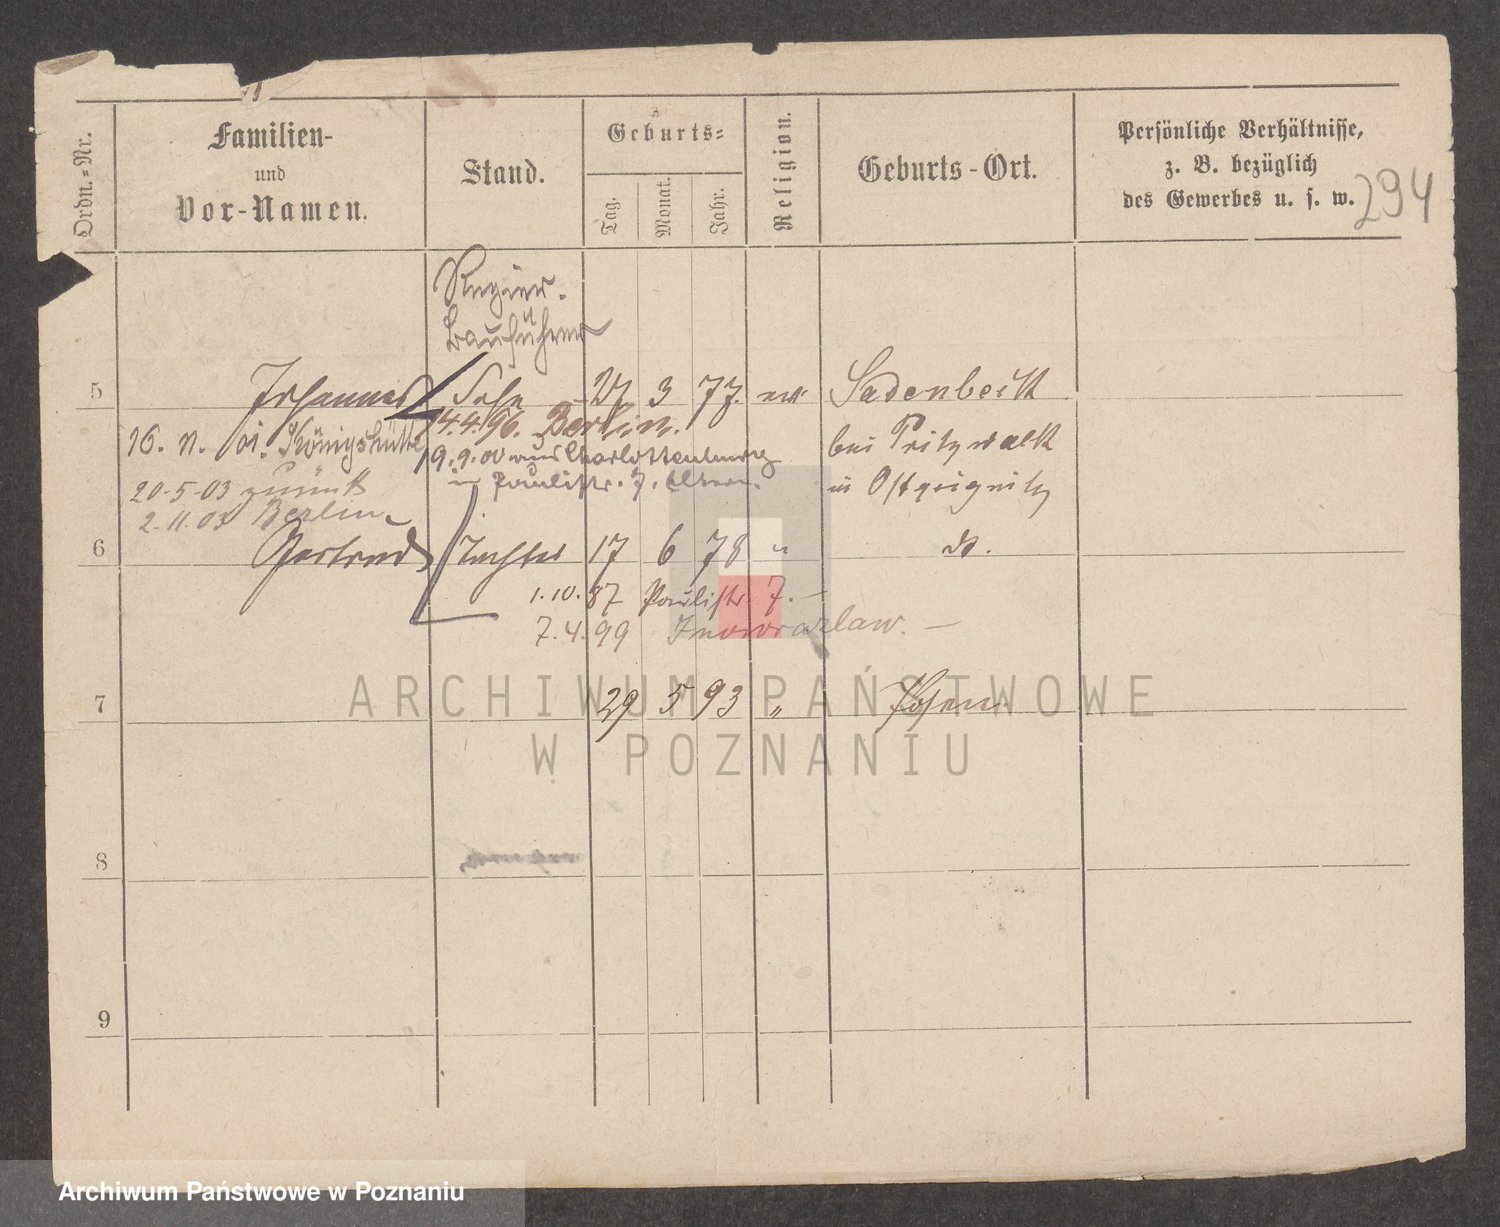 Ordn.-Nr.
Familien-
und
Vor-Namen.
Stand.
Geburts-
Tag.
Monat.
Jahr.
Religion.
Geburts-Ort.
Persönliche Verhältnisse,
z. B. bezüglich
des Gewerbes u. s. w.
294
Regier.
Bauführer
5 Johannes Sohn 27 3 77. ev. Sadenbeck
4.4.96. Berlin.
16. n. Königshütte
9.9.00 aus Charlottenburg
bei Pritzwalk
in Paulistr. 7. Eltern.
20-5-03 zurück
in Ostprignitz
2.11.03 Berlin
6 Gertrud Tochter 17 6 78 " do.
1.10.87 Paulistr. 7. —
7.4.99 Inowrazlaw. —
7 29 5 93 " Posen
8
9
ARCHIWUM PAŃSTWOWE
W POZNANIU
Archiwum Państwowe w Poznaniu